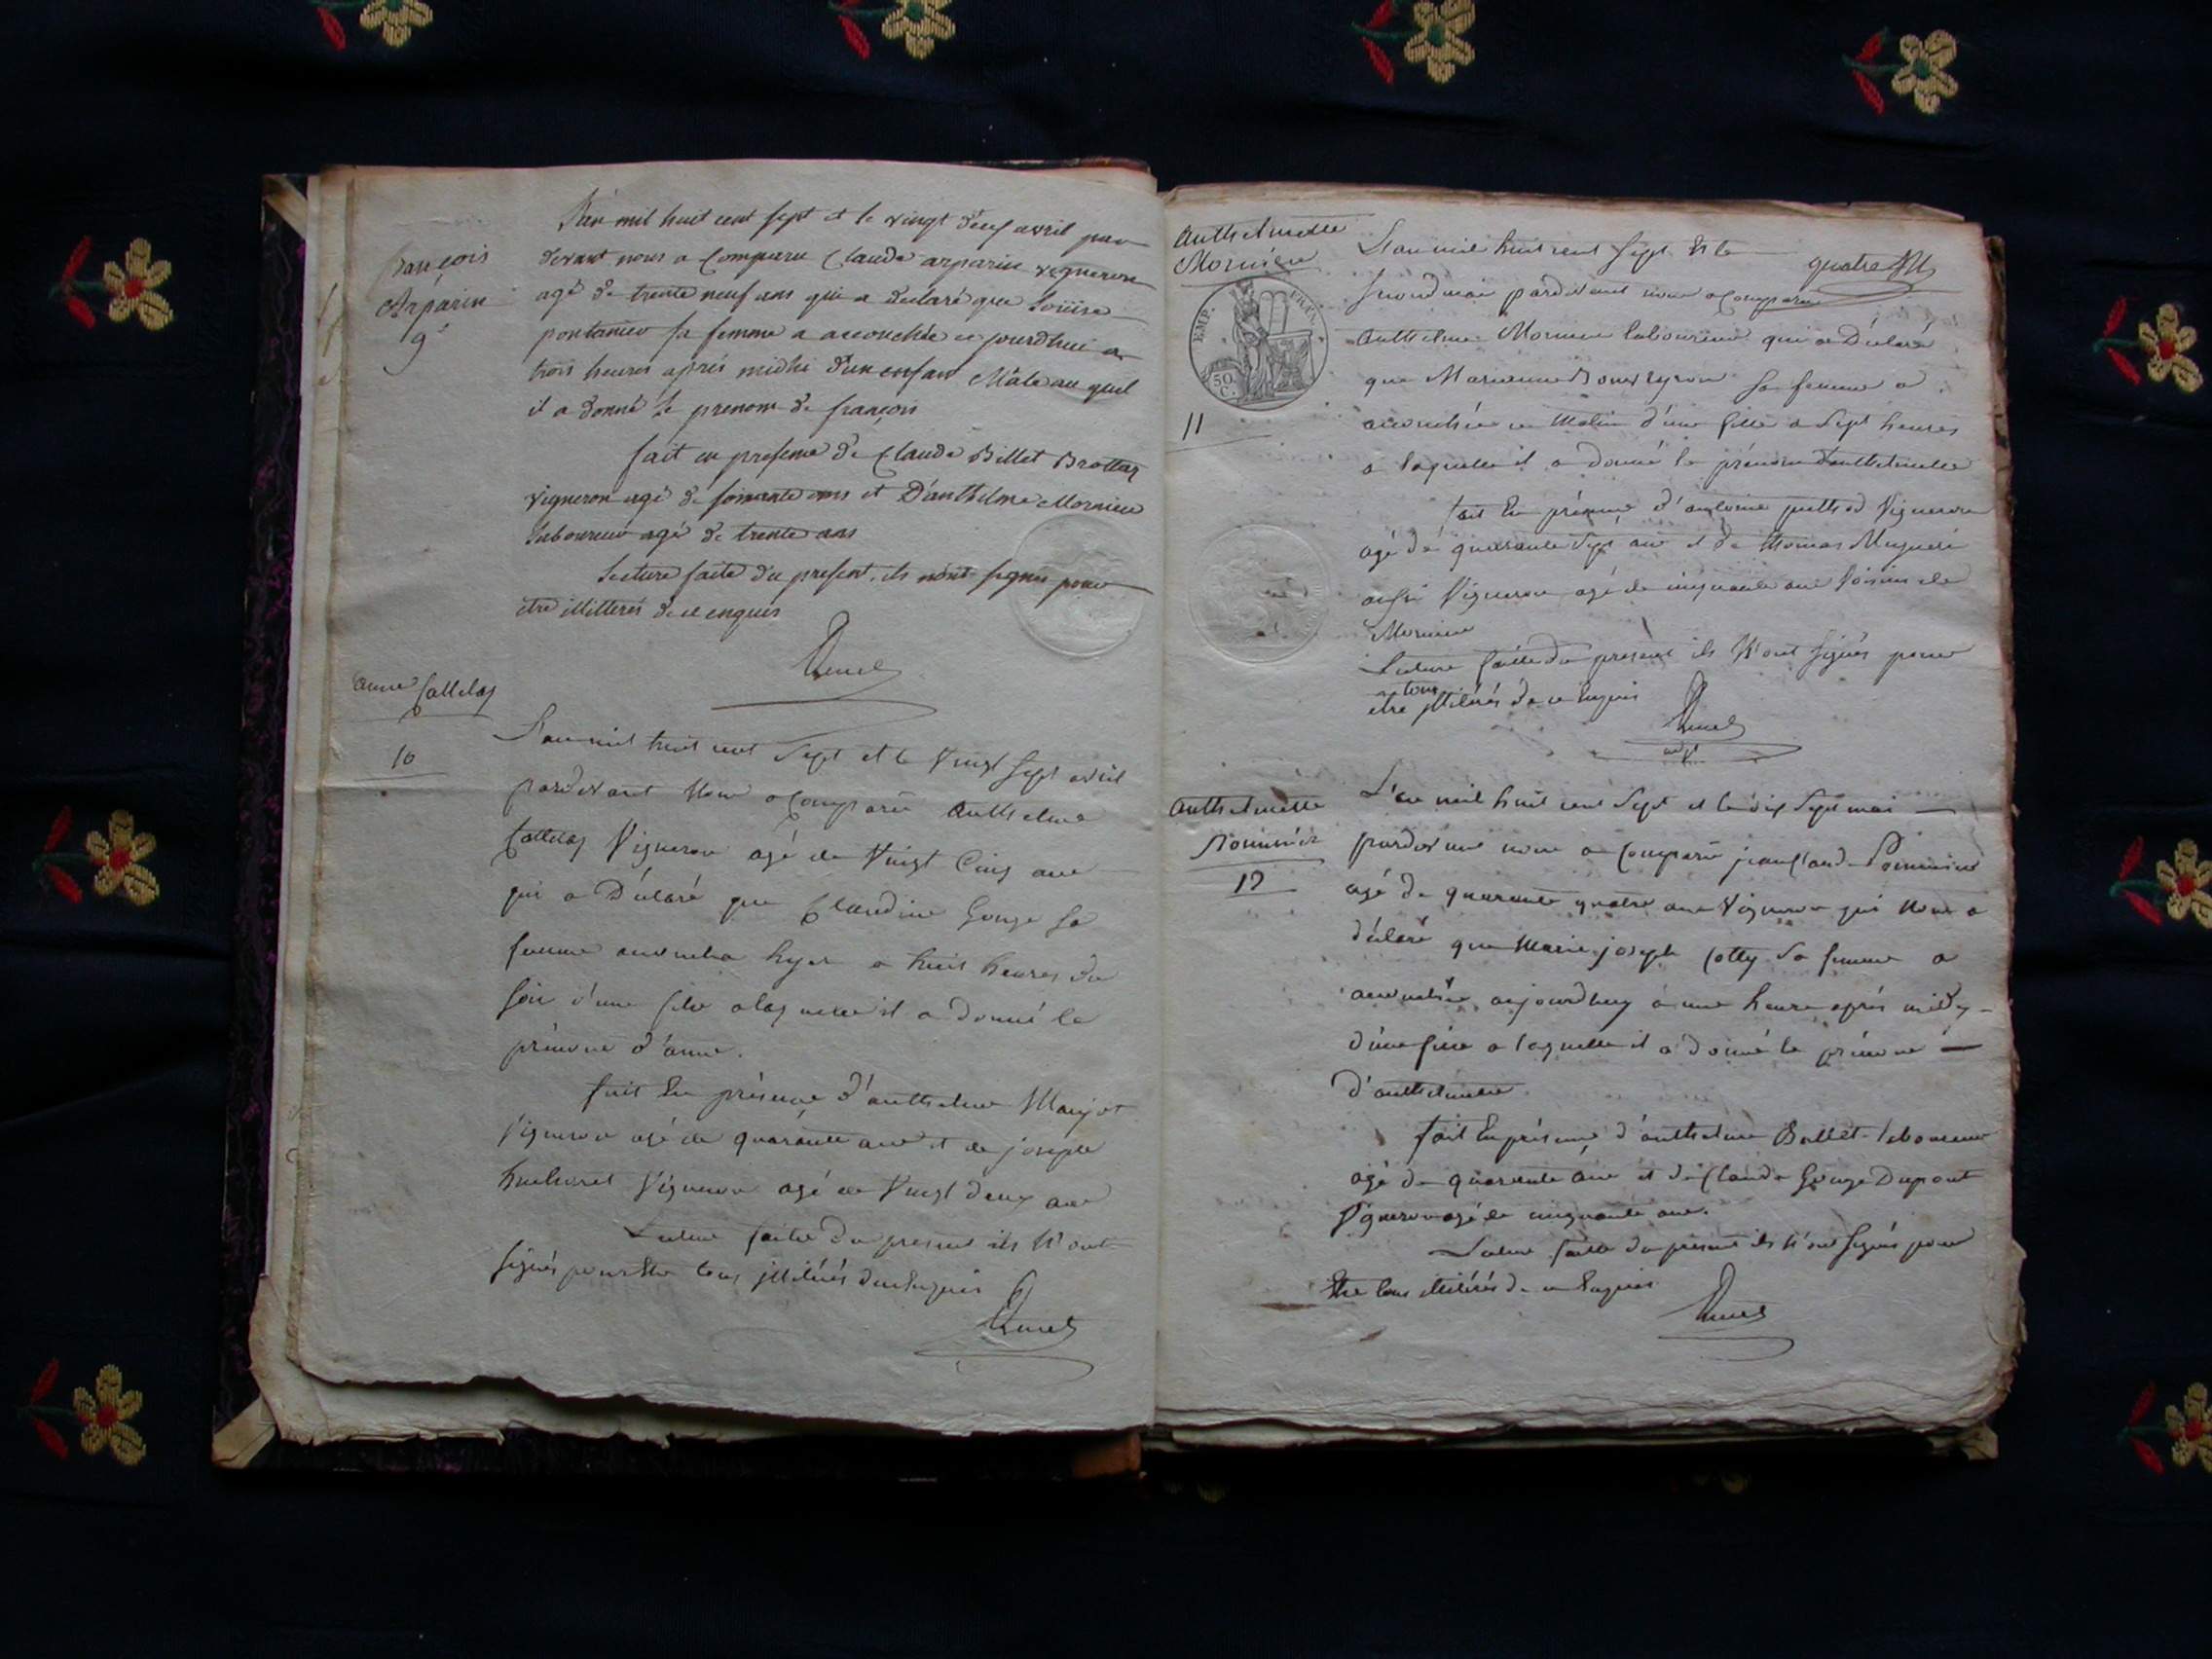 françois
Arparin
9e
L'an mil huit cent sept et le vingt deux avril par
devant nous a comparu Claude arparin vigneron
agé de trente neuf ans qui a declaré que Loüise
pontanier sa femme a accouchée ce jourdhui a
trois heures aprés midhi d'un enfant Mâle au quel
il a donné le prenom de françois
fait en presence de Claude Billet Brottaz
vigneron agé de soixante ans et D'anthelme Mornieu
laboureur agé de trente ans
lecture faite du present, ils n'ont signés pour
etre illitterés de ce enquis
anne Cattelaz
10
L'an mil huit cent sept et le vingt sept avril
pardevant nous a comparu anthelme
Cattelaz Vigneron agé de vingt cinq ans
qui a Déclaré que Claudine Gouge sa
femme accoucha hyer a huit heures du
soir d'une fille a laquelle il a donné le
prénom d'anne.
fait En présence d'anthelme Maujot
Vigneron agé de quarante ans et de joseph
Vigneron agé de vingt deux ans
Lecture faitte du present ils N'ont
signés pour Etre tous illitérés de ce Enquis
anthelmette
Mornieu
EMP. FRAN.
50 C.
11
quatre
L'an mil huit cent sept et le
second mai pardevant nous a comparu
anthelme Mornieu laboureur qui a Déclaré
que Marianne sa femme a
accouchée ce matin d'une fille a sept heures
a laquelle il a donné le prénom d'anthelmette
fait En présence d'antoine Vigneron
agé de quarante sept ans et de thomas
aussi Vigneron agé de cinquante ans voisins de
Mornieu
Lecture faitte du present ils N'ont signés pour
tous
etre illitérés de ce Enquis
anthelmette
Pomier
12
L'an mil huit cent sept et le dix sept mai
pardevant nous a comparu jean claude
agé de quarante quatre ans Vigneron qui nous a
déclaré que Marie joseph Cotty sa femme a
accouchée aujourdhuy a une heure aprés midy
d'une fille a laquelle il a donné le prénom
d'anthelmette
fait En présence d'anthelme Ballet laboureur
agé de quarante ans et de Claude Gouge Dupont
Vigneron agé de cinquante ans.
Lecture faitte du present ils N'ont signés pour
Etre tous illitérés de ce Enquis